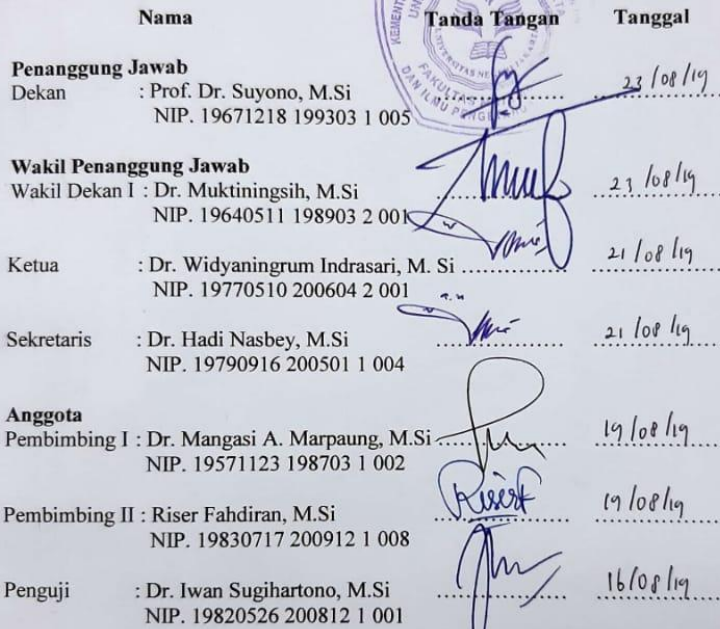 KEMENT
UNIVERSITAS NE JAKARTA
FAKULTAS
DAN ILMU PENGE
Nama Tanda Tangan Tanggal
Penanggung Jawab
Dekan : Prof. Dr. Suyono, M.Si .................. 23/08/19
NIP. 19671218 199303 1 005
Wakil Penanggung Jawab
Wakil Dekan I : Dr. Muktiningsih, M.Si 23/08/19
NIP. 19640511 198903 2 001
Ketua : Dr. Widyaningrum Indrasari, M. Si .................. 21/08/19
NIP. 19770510 200604 2 001
a.n
Sekretaris : Dr. Hadi Nasbey, M.Si .................. 21/08/19
NIP. 19790916 200501 1 004
Anggota
Pembimbing I : Dr. Mangasi A. Marpaung, M.Si .................. 19/08/19
NIP. 19571123 198703 1 002
Pembimbing II : Riser Fahdiran, M.Si .................. 19/08/19
NIP. 19830717 200912 1 008
Penguji : Dr. Iwan Sugihartono, M.Si .................. 16/08/19
NIP. 19820526 200812 1 001